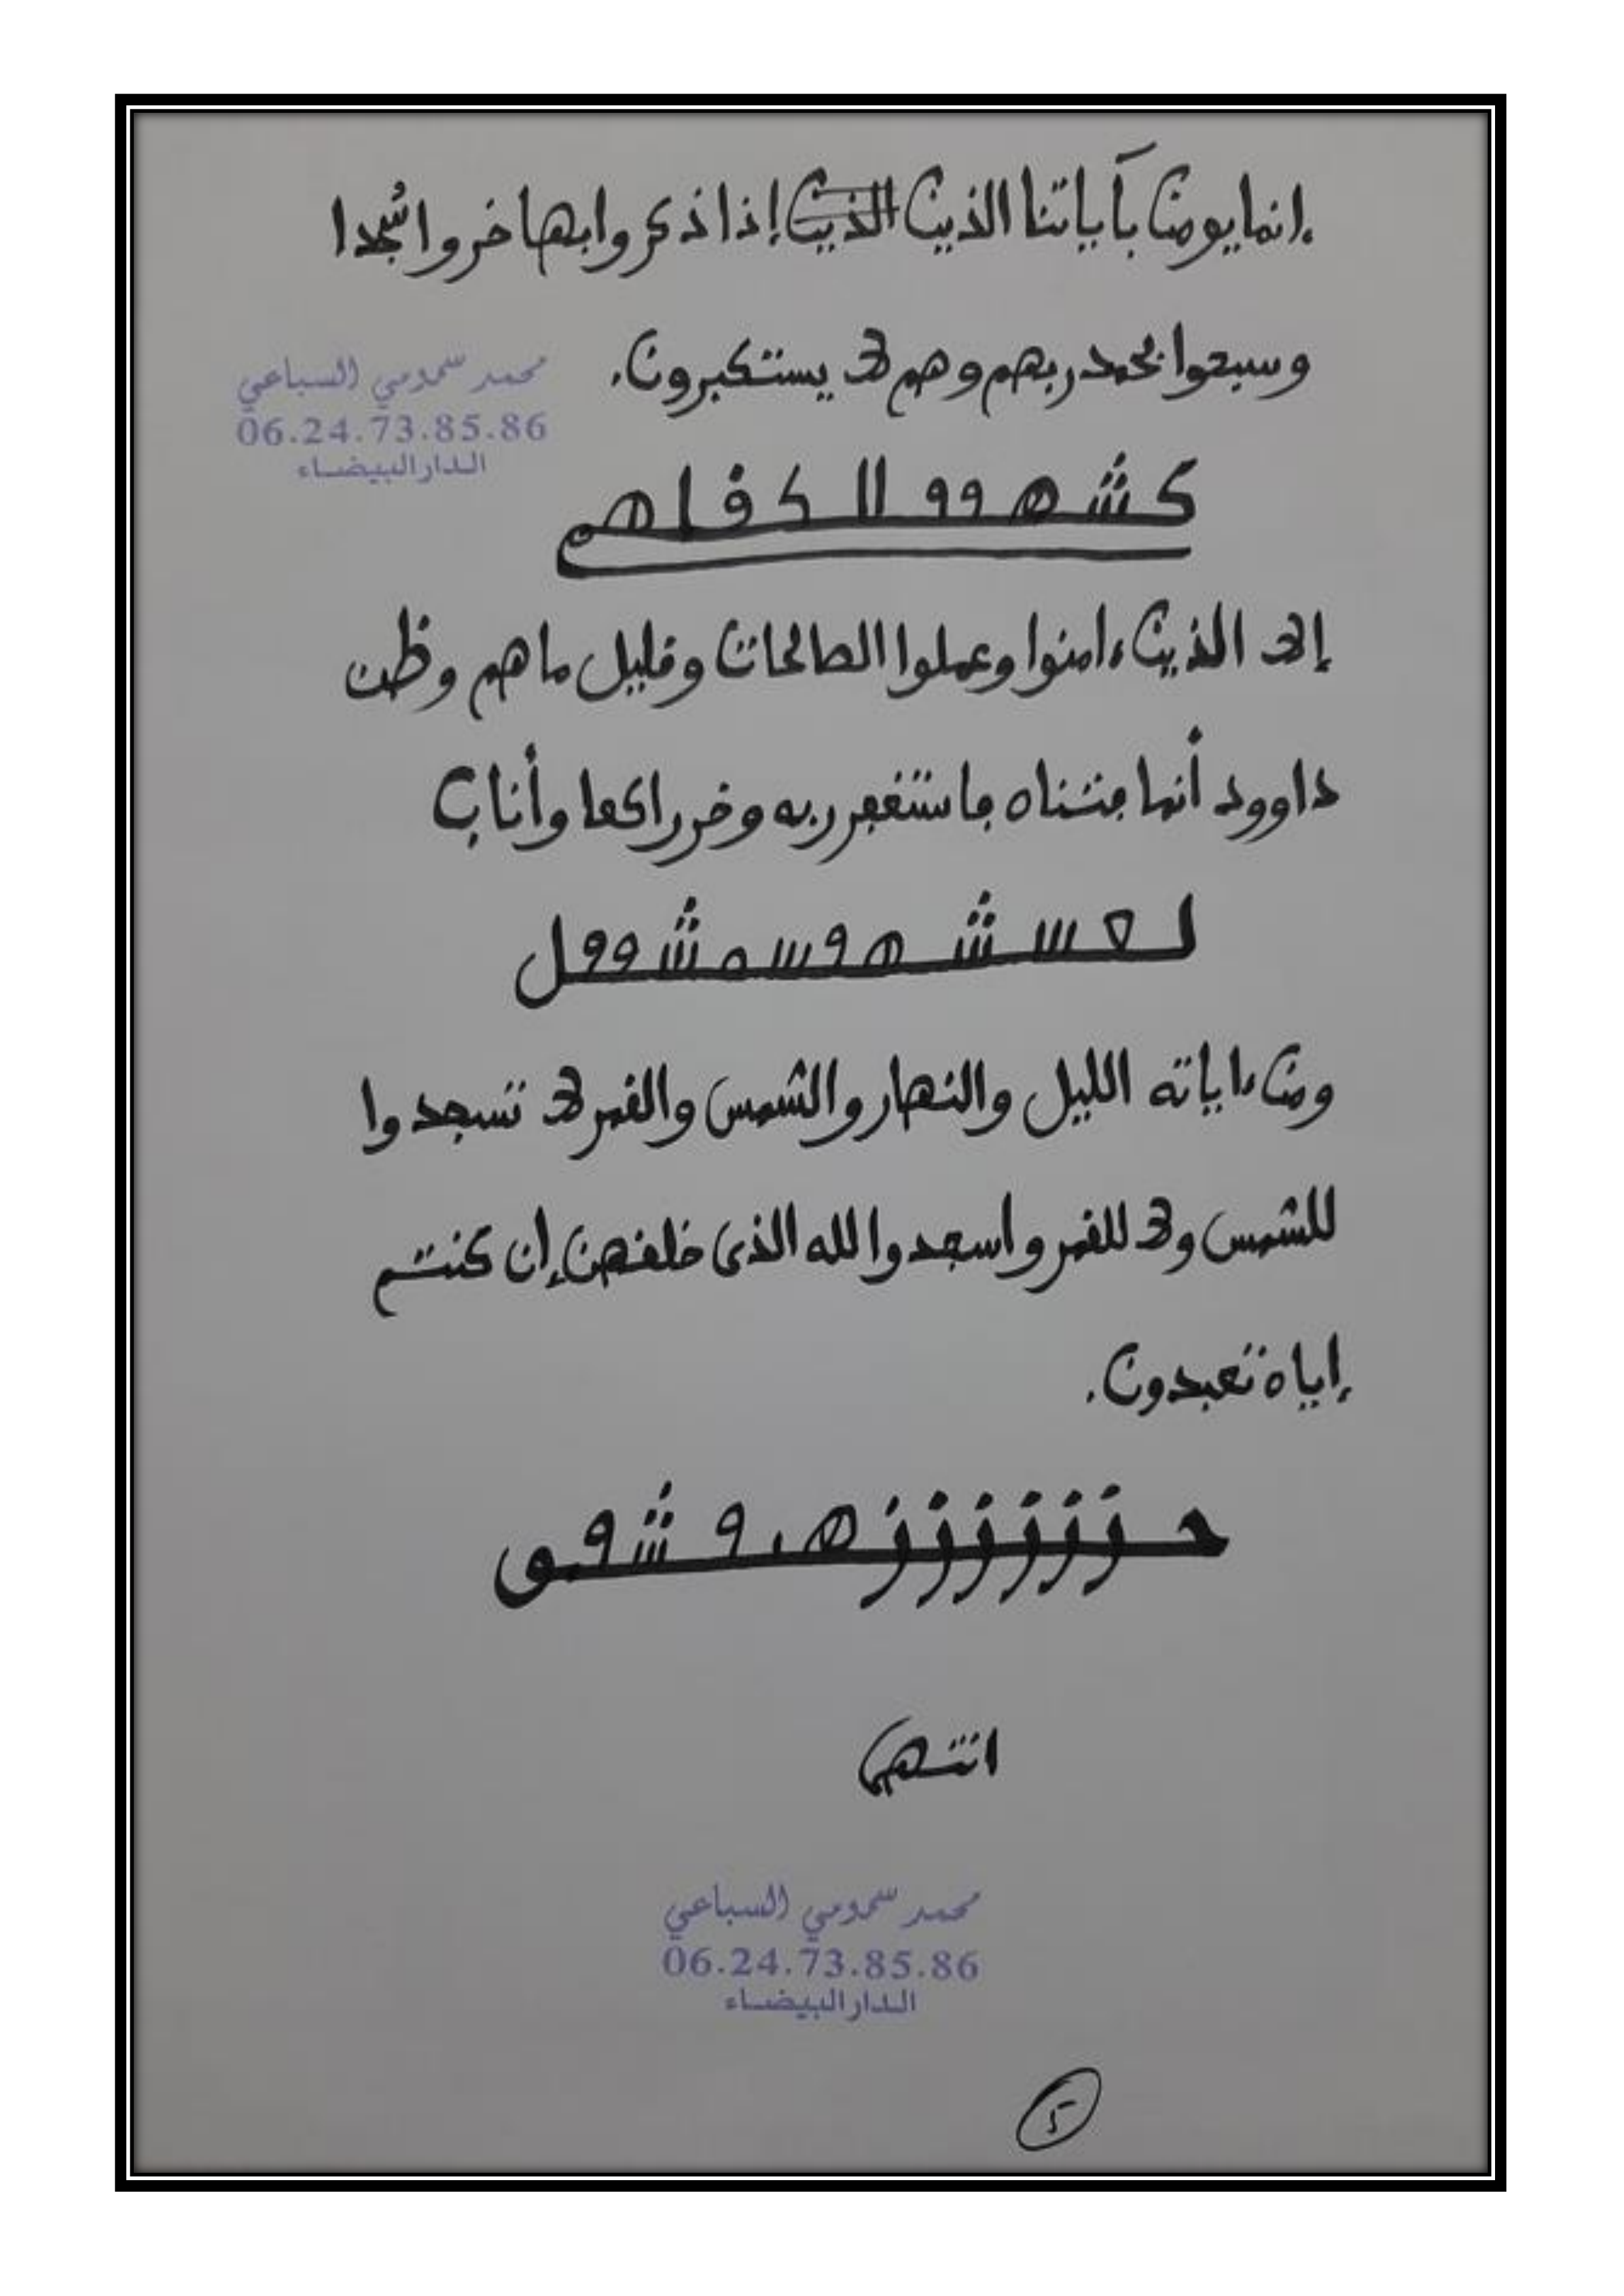 إنما يومن بآياتنا الذين الذين إذا ذكروا بها خروا سُجدا
وسبحوا بحمد ربهم وهم لا يستكبرون.
محمد سمومي السباعي
06.24.73.85.86
الدار البيضاء
إلا الذين ءامنوا وعملوا الصالحات وقليل ما هم وظن
داوود أنما فتناه فاستغفر ربه وخر راكعا وأناب
ومن ءاياته الليل والنهار والشمس والقمر لا تسجدوا
للشمس ولا للقمر واسجدوا لله الذي خلقهن إن كنتم
إياه تعبدون.
انتهى
محمد سمومي السباعي
06.24.73.85.86
الدار البيضاء